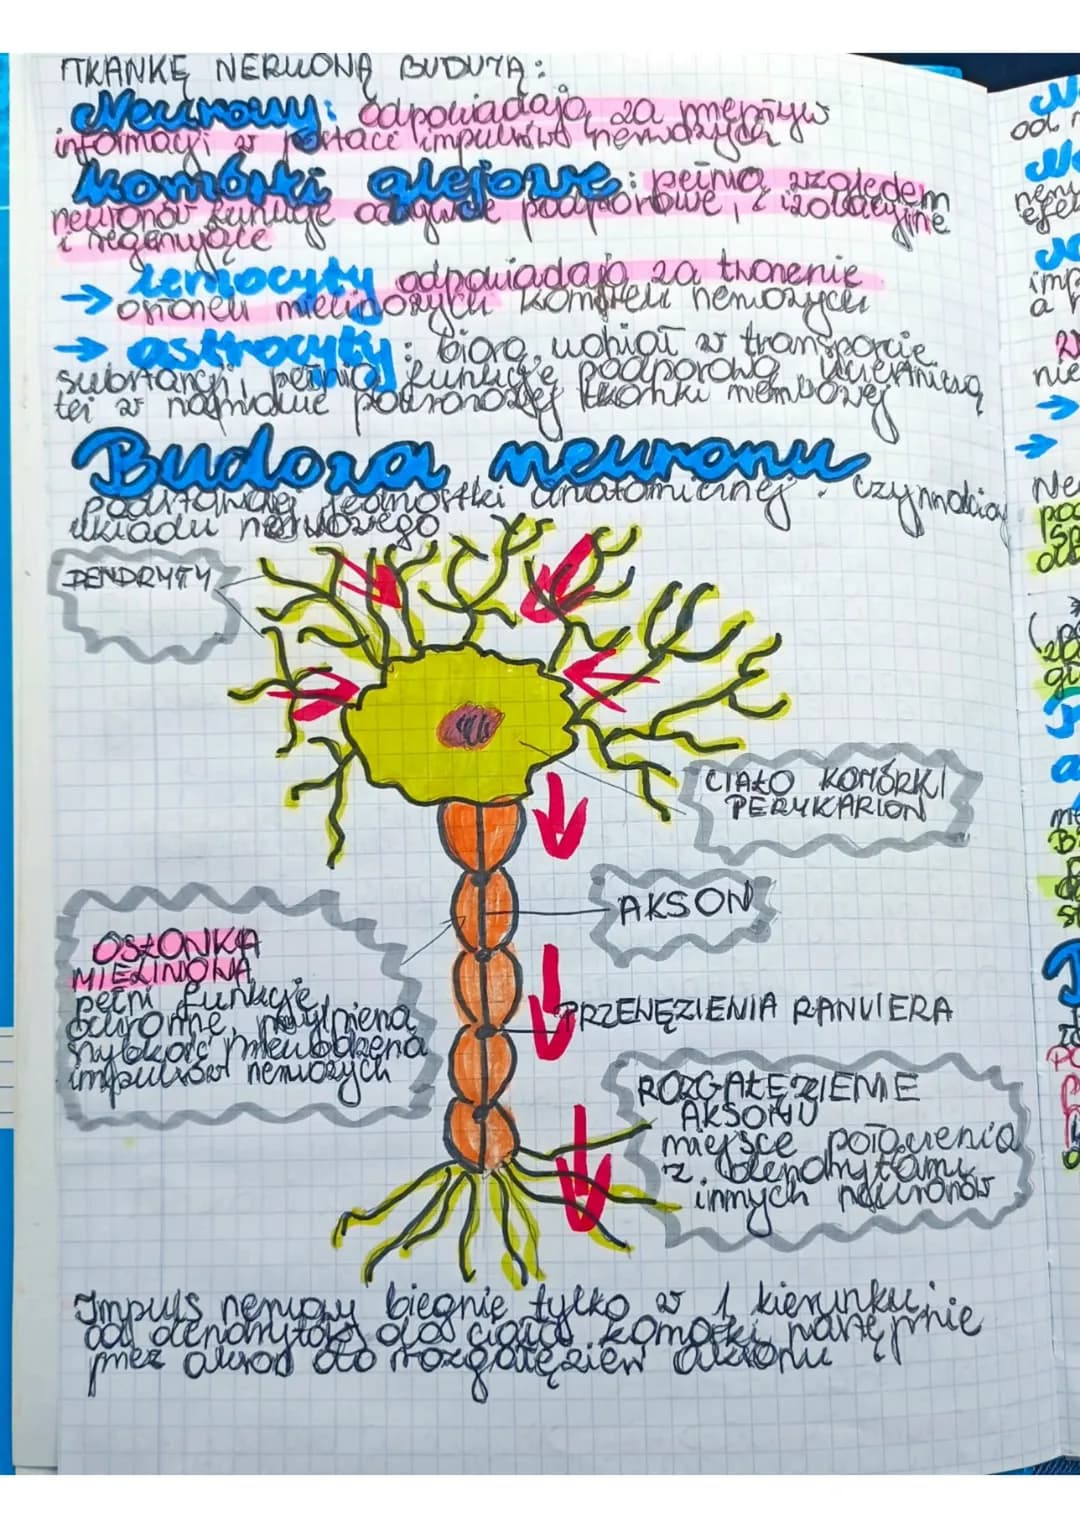 TKANKĘ NERWOWĄ BUDUJĄ:
Neurony: odpowiadają za przepływ
informacji w postaci impulsów nerwowych
komórki glejowe: pełnią względem
neuronów funkcje odżywcze podporowe, i izolacyjne
i regenujące
→ lemocyty odpowiadają za tworzenie
osłonek mielinowych komórek nerwowych
→ astrocyty: biorą udział w transporcie
substancji, pełnią funkcję podporową, uczestniczą
też w naprawie tkanki nerwowej
Budowa neuronu
podstawowej jednostki anatomicznej i czynnościowej
układu nerwowego
DENDRYTY
CIAŁO KOMÓRKI
PERYKARION
AKSON
OSŁONKA
MIELINOWA
pełni funkcję
ochronne,
szybkość przewodzenia
impulsów nerwowych
PRZEWĘZIENIA RANVIERA
ROZGAŁĘZIENIE
AKSONU
miejsce połączenia
z dendrytami
innych neuronów
Impuls nerwowy biegnie tylko w 1 kierunku:
od dendrytów do ciała komórki następnie
przez akson do rozgałęzień aksonu